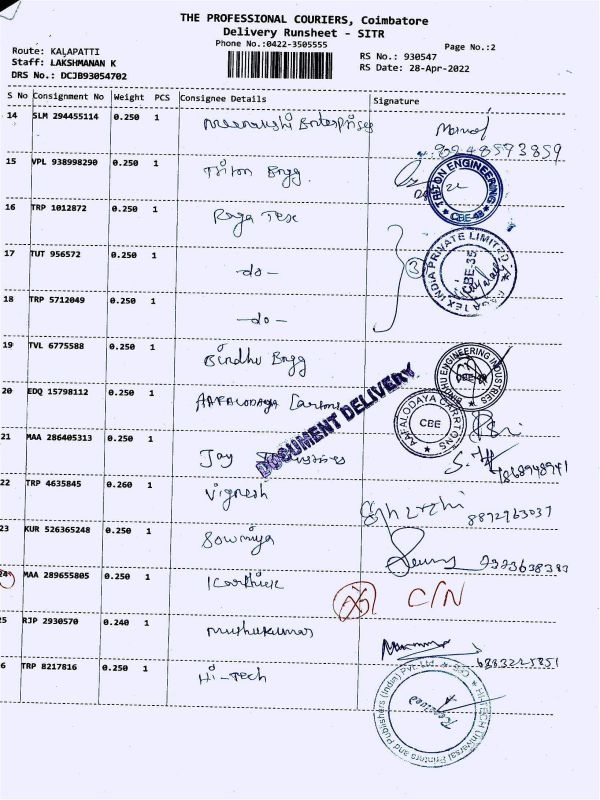 THE PROFESSIONAL COURIERS, Coimbatore
Delivery Runsheet - SITR
Phone No.:0422-3505555
Page No.:2
Route: KALAPATTI
Staff: LAKSHMANAN K
DRS No.: DCJB93054702
RS No.: 930547
RS Date: 28-Apr-2022
S No Consignment No Weight PCS Consignee Details Signature
14 SLM 294455114 0.250 1 Meenakshi Enterprises
15 VPL 938998290 0.250 1 Triton Engg.
TRITON ENGINEERING
CBE-48
16 TRP 1012872 0.250 1 Raga Tex
17 TUT 956572 0.250 1 -do- 3
RAGA TEX INDIA PRIVATE LIMITED
CBE-35
18 TRP 5712049 0.250 1 -do-
19 TVL 6775588 0.250 1 Bindhu Engg
BINDHU ENGINEERING INDUSTRIES
20 EDQ 15798112 0.250 1 Cartons
CBE
DOCUMENT DELIVERY
21 MAA 286405313 0.250 1 Jay
22 TRP 4635845 0.260 1 Vignesh
23 KUR 526365248 0.250 1 Sowmiya
24 MAA 289655805 0.250 1 Karthick C/N
5 RJP 2930570 0.240 1 Muthukumar
6 TRP 8217816 0.250 1 Hi-Tech
HI-TECH Universal Printers and Publishers (India) Pvt. Ltd.
Received